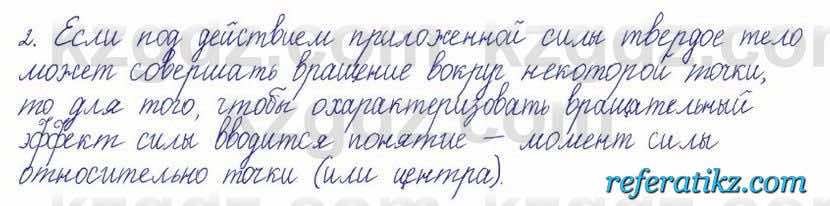 2. Если под действием приложенной силы твердое тело
может совершать вращение вокруг некоторой точки,
то для того, чтобы охарактеризовать вращательный
эффект силы вводится понятие – момент силы
относительно точки (или центра).
referatikz.com